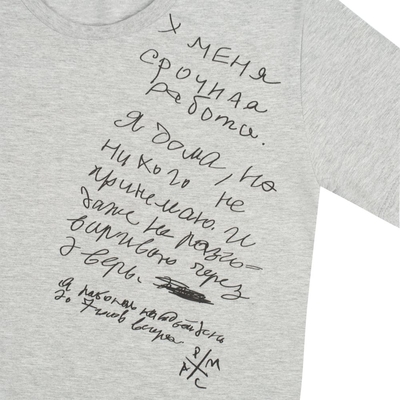 У МЕНЯ
СРОЧНАЯ
работа.
Я дома, но
никого не
принемаю. И
даже не разго=
вариваю через
дверь.
Я работаю каждый день
до 7 часов вечера
Р М
А С